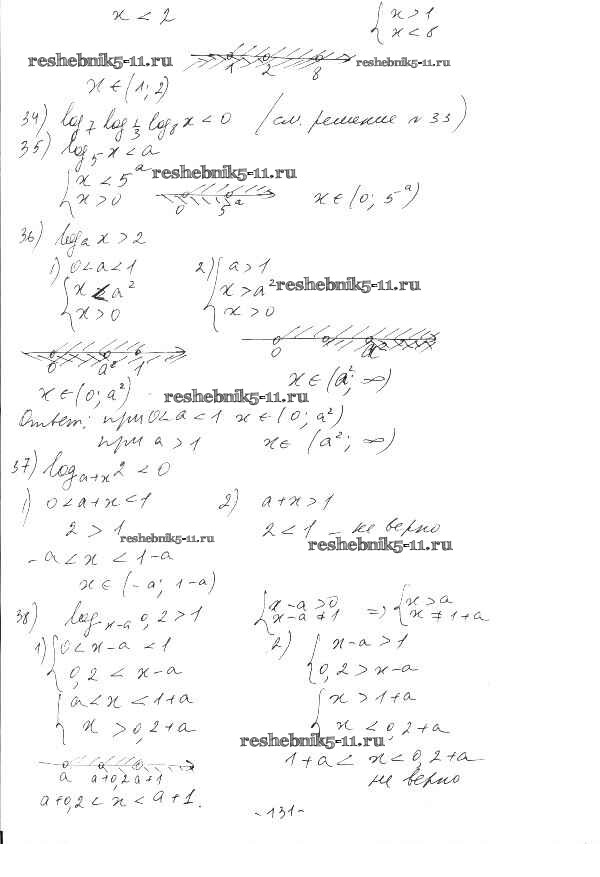 x < 2
{ x > 1
x < 8
reshebnik5-11.ru
1 2 8
reshebnik5-11.ru
x ∈ (1; 2)
34) log₇ log_{1/3} log₈ x < 0 (см. решение n 33)
35) log₅ x < a
reshebnik5-11.ru
{ x < 5^a
x > 0
0 5^a
x ∈ (0; 5^a)
36) log_a x > 2
1) 0 < a < 1
{ x < a²
x > 0
2) { a > 1
x > a²
x > 0
reshebnik5-11.ru
0 a² 1
0 a²
x ∈ (0; a²)
x ∈ (a²; ∞)
reshebnik5-11.ru
Ответ: при 0 < a < 1 x ∈ (0; a²)
при a > 1 x ∈ (a²; ∞)
37) log_{a+x} 2 < 0
1) 0 < a + x < 1
2 > 1
reshebnik5-11.ru
2) a + x > 1
2 < 1 – не верно
reshebnik5-11.ru
-a < x < 1 - a
x ∈ (-a; 1-a)
38) log_{x-a} 0,2 > 1
{ x - a > 0
x - a ≠ 1
=> { x > a
x ≠ 1 + a
1) { 0 < x - a < 1
0,2 < x - a
{ a < x < 1 + a
x > 0,2 + a
a a+0,2 a+1
a + 0,2 < x < a + 1.
2) { x - a > 1
0,2 > x - a
{ x > 1 + a
x < 0,2 + a
reshebnik5-11.ru
1 + a < x < 0,2 + a
не верно
- 131 -